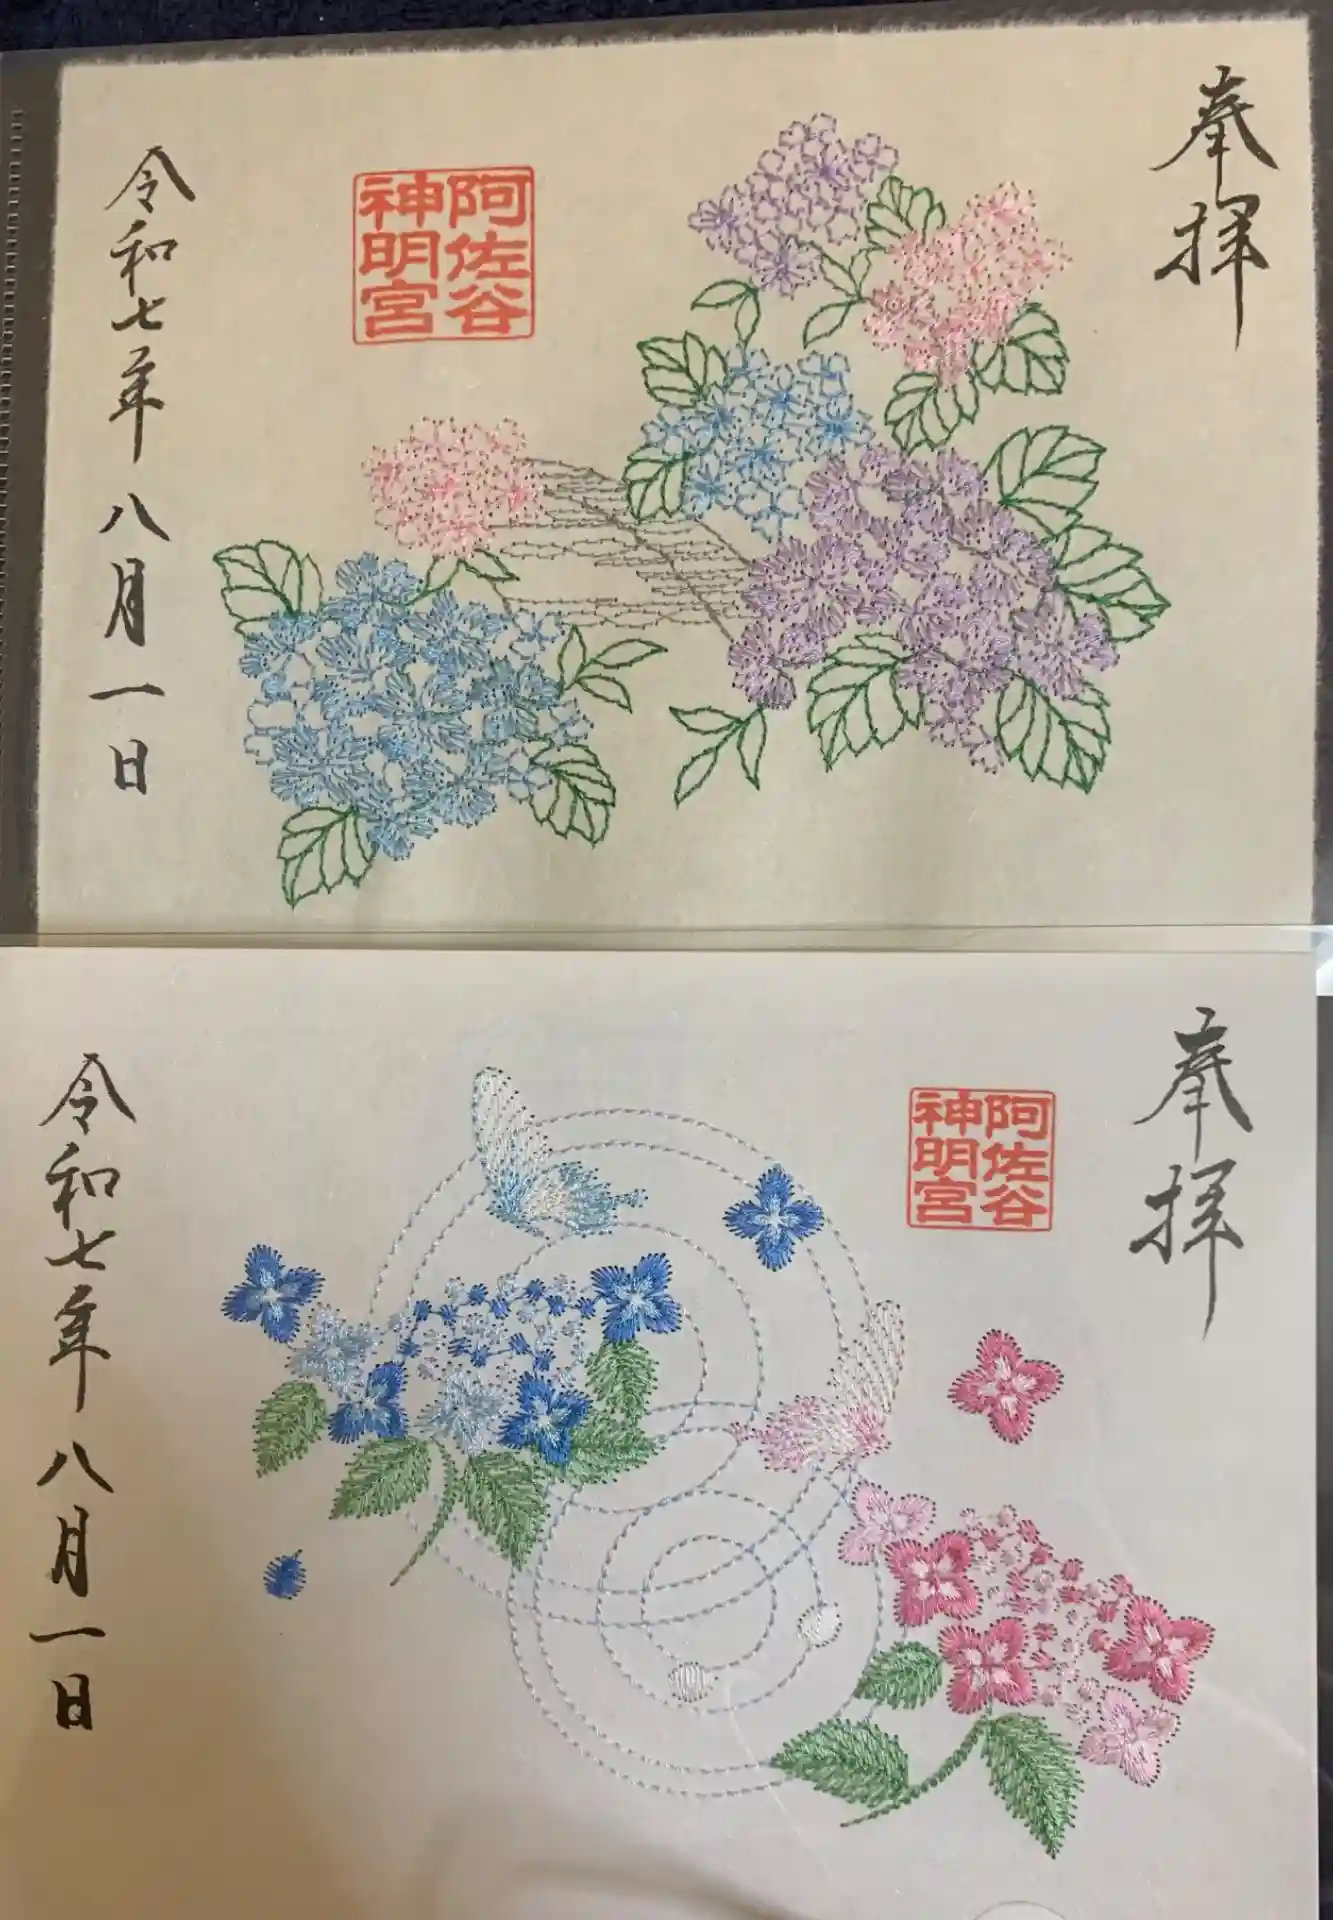 奉拝
阿佐谷
神明宮
令和七年八月一日
奉拝
阿佐谷
神明宮
令和七年八月一日